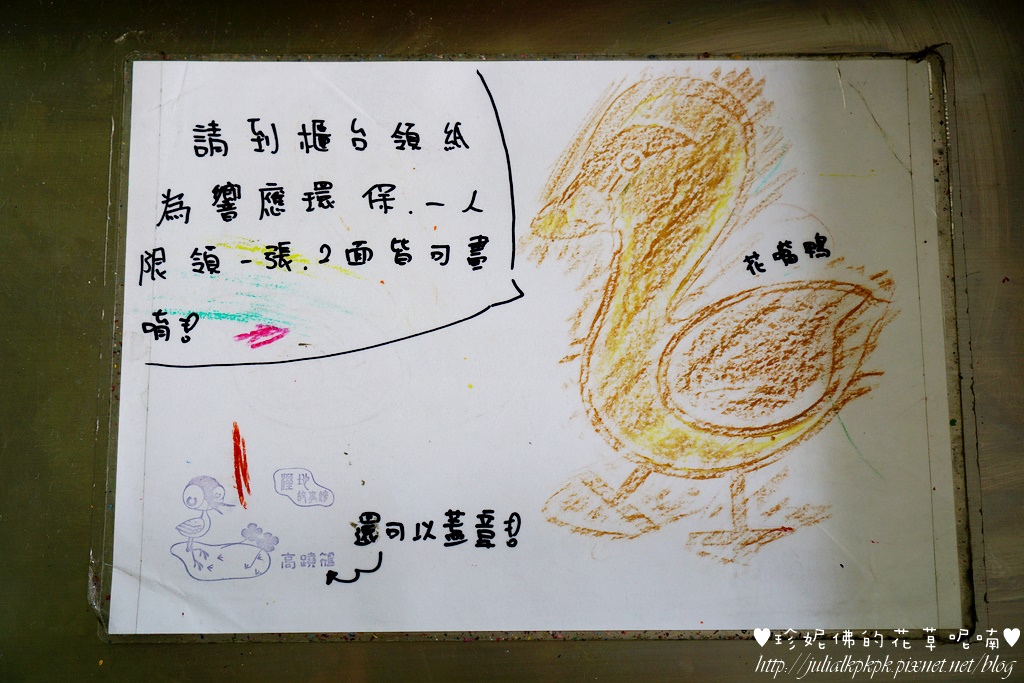 請到櫃台領紙
為響應環保.一人
限領一張.2面皆可畫
唷!
花嘴鴨
溼地
故事館
還可以蓋章!
高蹺鴴
♥珍妮佛的花草呢喃♥
http://julialkpkpk.pixnet.net/blog